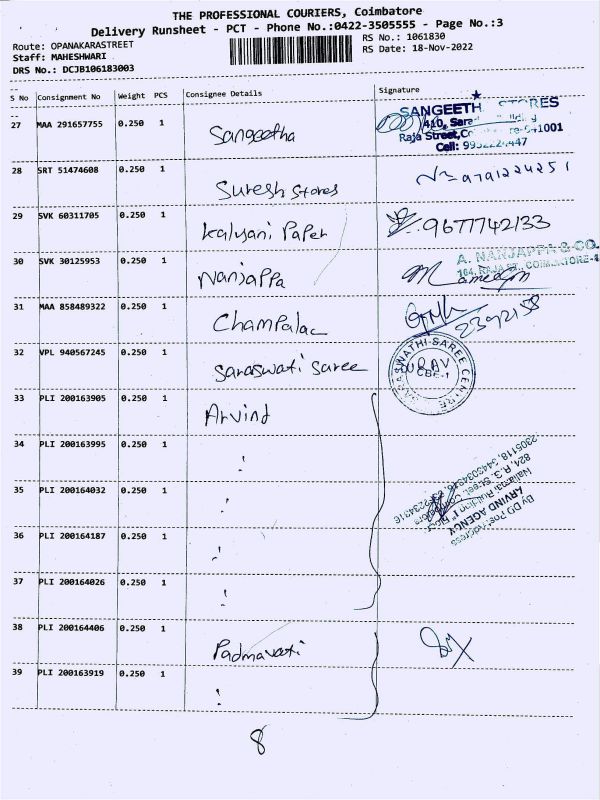 THE PROFESSIONAL COURIERS, Coimbatore
Delivery Runsheet - PCT - Phone No.:0422-3505555 - Page No.:3
Route: OPANAKARASTREET
Staff: MAHESHWARI
DRS No.: DCJB106183003
RS No.: 1061830
RS Date: 18-Nov-2022
S No Consignment No Weight PCS Consignee Details Signature
27 MAA 291657755 0.250 1 Sangeetha
SANGEETH STORES
410,
Raja Street,
Cell:
28 SRT 51474608 0.250 1 Suresh Stores 9791224251
29 SVK 60311705 0.250 1 Kalyani Paper 9677742133
30 SVK 30125953 0.250 1 Nanjappa
A. NANJAPPA & CO.
104, RAJA ST., COIMBATORE-1
31 MAA 858489322 0.250 1 Champalac 2392158
32 VPL 940567245 0.250 1 Saraswati Saree
SARASWATHI SAREE CENTRE
CBE-1
33 PLI 200163905 0.250 1 Arvind
34 PLI 200163995 0.250 1 "
35 PLI 200164032 0.250 1 "
By DD Post Address
ARVIND AGENCY
Nallamai Building I Floor
824, R.G. Street,
36 PLI 200164187 0.250 1 "
37 PLI 200164026 0.250 1 "
38 PLI 200164406 0.250 1 Padmavati
39 PLI 200163919 0.250 1 "
8